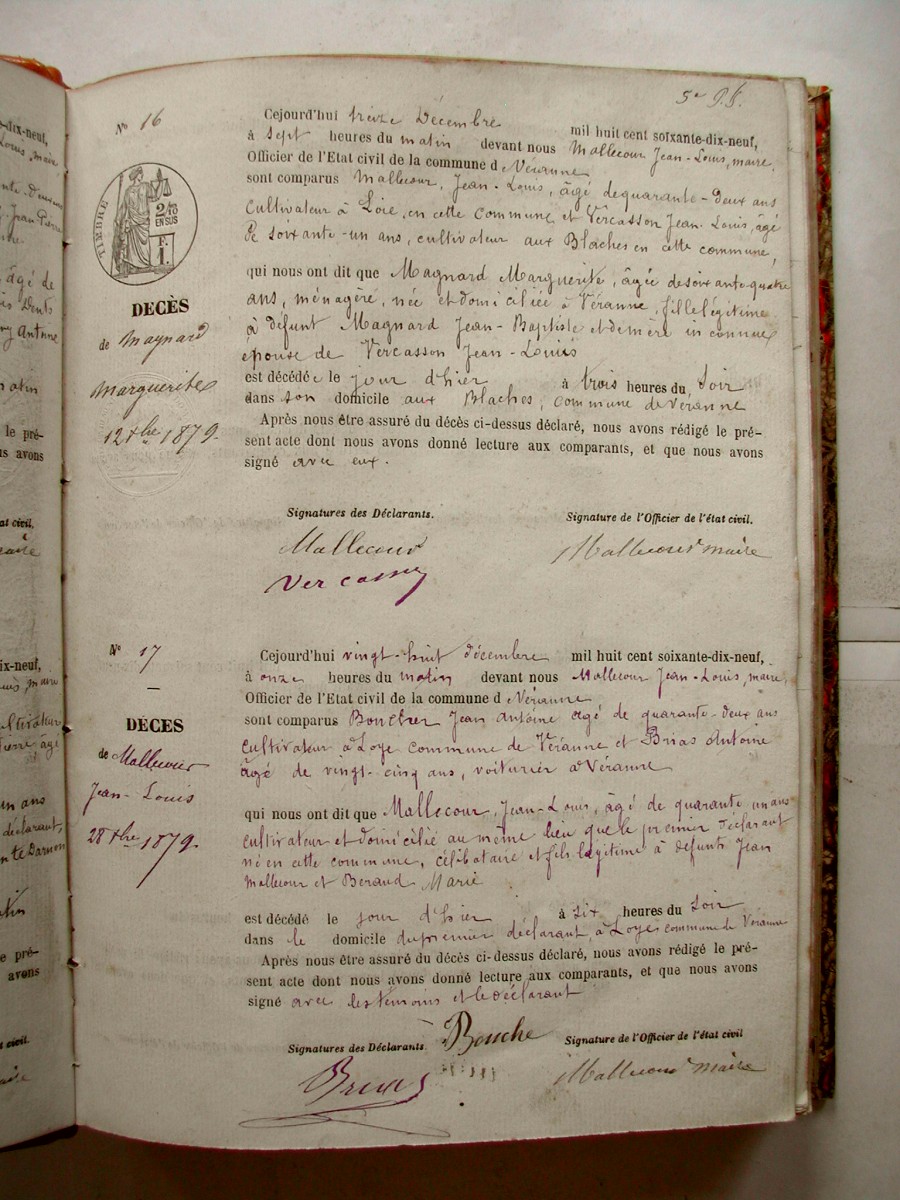 5e P.f.
No 16
Cejourd'hui treize Décembre mil huit cent soixante-dix-neuf,
à sept heures du matin devant nous Mallecour Jean-Louis, maire
Officier de l'Etat civil de la commune d Véranne
sont comparus Mallecour, Jean-Louis, âgé de quarante-deux ans
cultivateur à Loie, en cette commune et Vercasson Jean-Louis, âgé
de soixante-un ans, cultivateur aux Blaches en cette commune,
qui nous ont dit que Magnard Marguerite, âgée de soixante quatre
ans, ménagère, née et domiciliée à Véranne, fille légitime
à défunt Magnard Jean-Baptiste et de mère inconnue
épouse de Vercasson Jean-Louis
est décédée le jour d'hier à trois heures du soir
dans son domicile aux Blaches, commune de Véranne
Après nous être assuré du décès ci-dessus déclaré, nous avons rédigé le pré-
sent acte dont nous avons donné lecture aux comparants, et que nous avons
signé avec eux.
TIMBRE
2/10
EN SUS
F.
1.
DECÈS
de Magnard
Marguerite
12 Xbre 1879.
Signatures des Déclarants.
Signature de l'Officier de l'état civil.
Mallecour
Mallecour maire
Vercasson
No 17
Cejourd'hui vingt-huit décembre mil huit cent soixante-dix-neuf,
à onze heures du matin devant nous Mallecour Jean-Louis, maire,
Officier de l'Etat civil de la commune d Véranne
sont comparus Boucher Jean Antoine âgé de quarante-deux ans
cultivateur à Loye commune de Véranne et Brias Antoine
âgé de vingt-cinq ans, voiturier à Véranne
qui nous ont dit que Mallecour, Jean-Louis, âgé de quarante un ans
cultivateur et domicilié au même lieu que le premier déclarant
né en cette commune, célibataire et fils légitime à défunts Jean
Mallecour et Beraud Marie
est décédé le jour d'hier à six heures du soir
dans le domicile du premier déclarant, à Loye commune de Véranne
Après nous être assuré du décès ci-dessus déclaré, nous avons rédigé le pré-
sent acte dont nous avons donné lecture aux comparants, et que nous avons
signé avec les témoins et le déclarant
DÉCES
de Mallecour
Jean-Louis
28 Xbre 1879.
Signatures des Déclarants.
Bouche
Signature de l'Officier de l'état civil
Brias
Mallecour maire